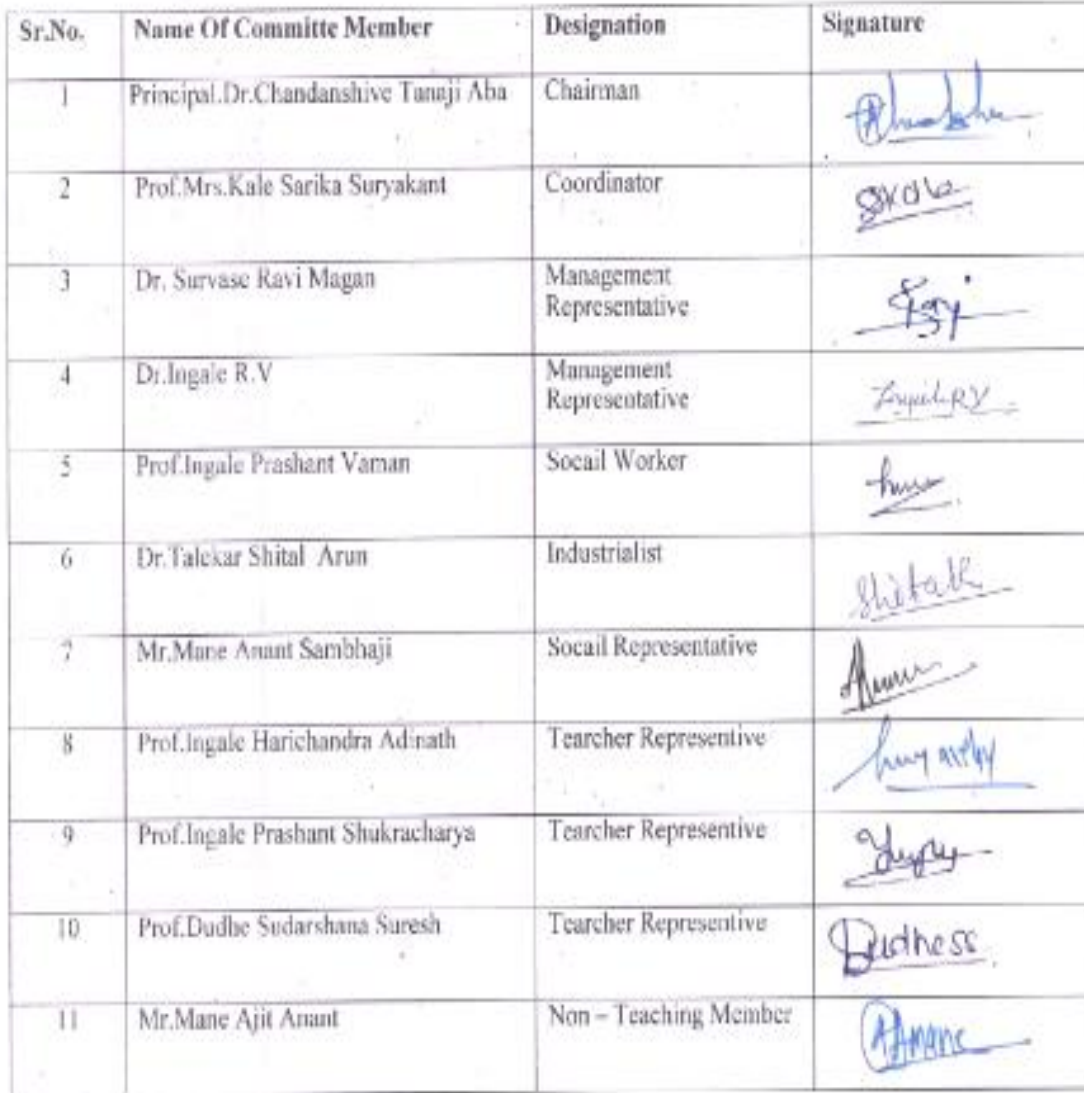 Sr.No. Name Of Committe Member Designation Signature
1 Principal.Dr.Chandanshive Tanaji Aba Chairman
2 Prof.Mrs.Kale Sarika Suryakant Coordinator
3 Dr. Survase Ravi Magan Management
Representative
4 Dr.Ingale R.V Management
Representative
5 Prof.Ingale Prashant Vaman Socail Worker
6 Dr.Talekar Shital Arun Industrialist
7 Mr.Mane Anant Sambhaji Socail Representative
8 Prof.Ingale Harichandra Adinath Tearcher Representive
9 Prof.Ingale Prashant Shukracharya Tearcher Representive
10 Prof.Dudhe Sudarshana Suresh Tearcher Representive
Dudhess
11 Mr.Mane Ajit Anant Non – Teaching Member
AAmane